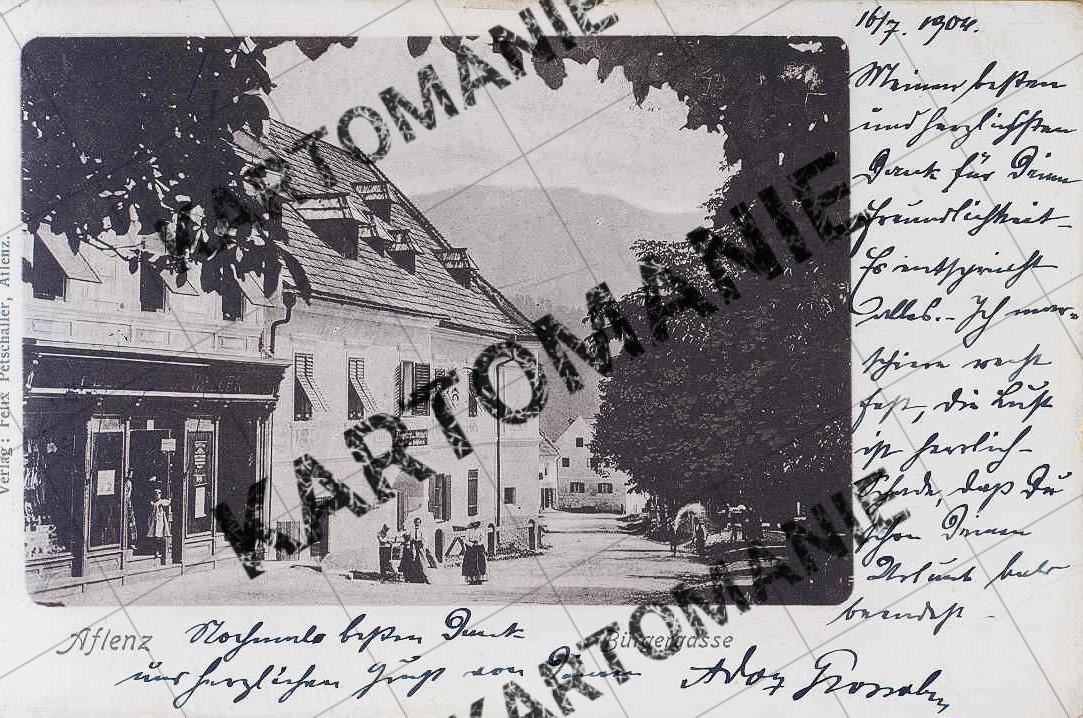 16/7. 1904.
Meinen besten
und herzlichsten
Dank für Deine
Freundlichkeit-
Es entspricht
alles.- Ich mar=
schiere recht
fest, die Luft
ist herrlich-
Schade, daß Du
schon Deinen
Urlaub
beendest -
Verlag: Felix Petschaller, Aflenz.
Aflenz
Bürgergasse
Nochmals besten Dank
und herzlichen Gruß von Deinem
KARTOMANIE
KARTOMANIE
KARTOMANIE
KARTOMANIE